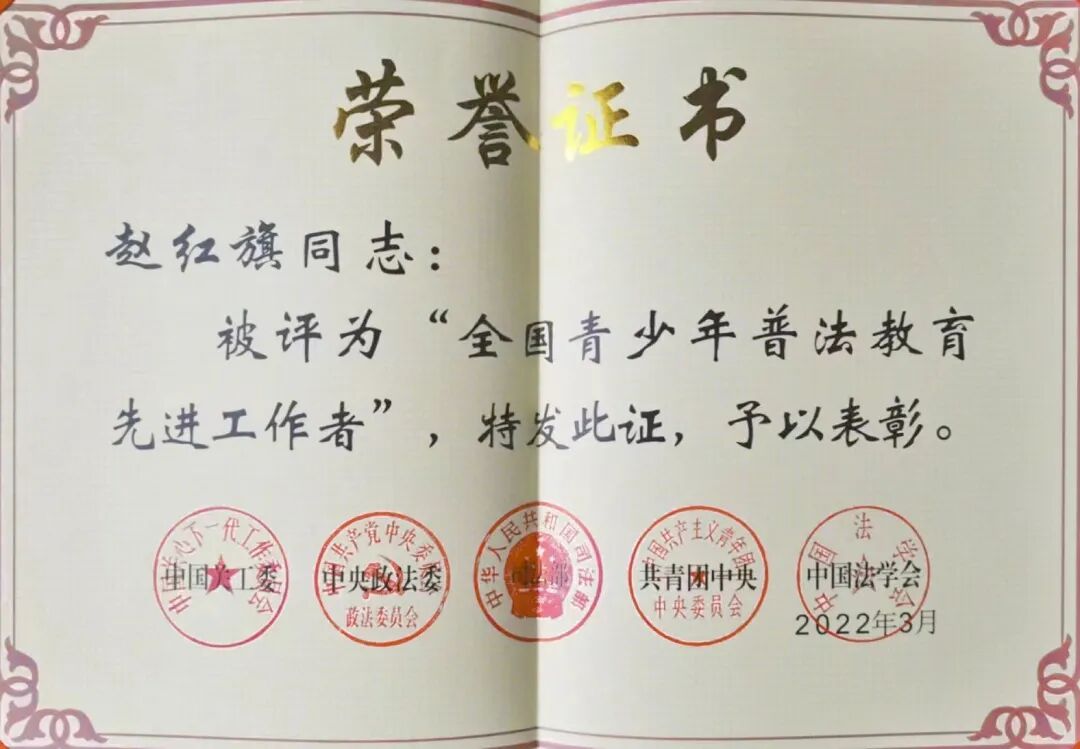 荣誉证书
赵红旗同志：
被评为“全国青少年普法教育
先进工作者”，特发此证，予以表彰。
中国关工委 中央政法委 司法部 共青团中央 中国法学会
中国关心下一代工作委员会
中国共产党中央委员会
政法委员会
中华人民共和国司法部
中国共产主义青年团
中央委员会
中国法学会
2022年3月